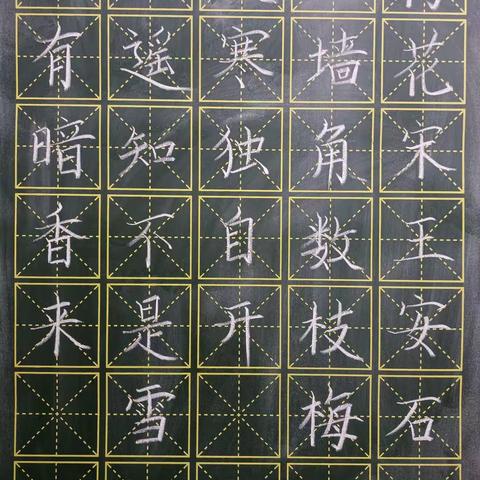 花宋王安石
墙角数枝梅
寒独自开
遥知不是雪
有暗香来